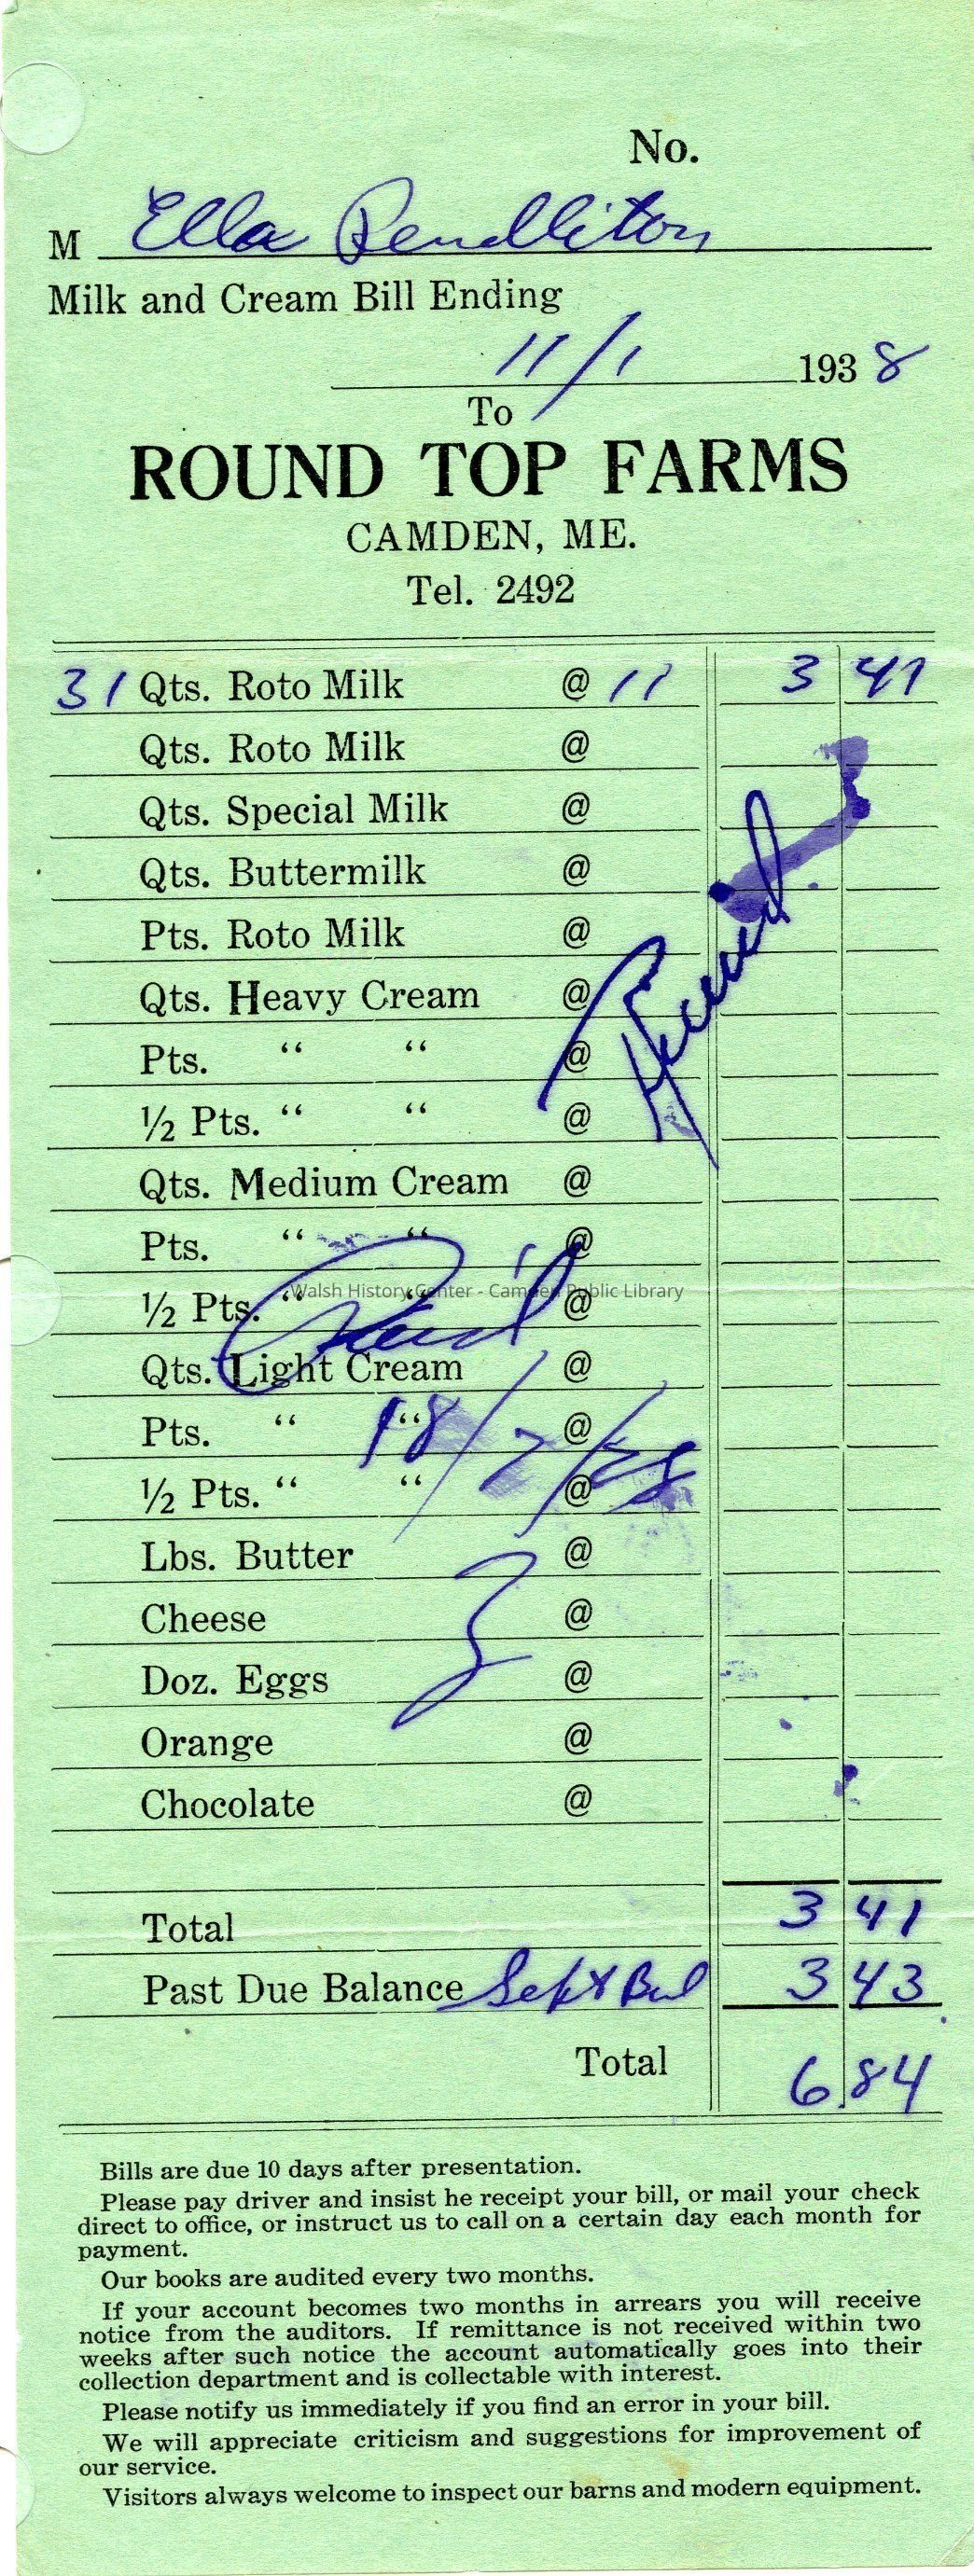 No.
M Ella Pendleton
Milk and Cream Bill Ending
11/1 1938
To
ROUND TOP FARMS
CAMDEN, ME.
Tel. 2492
31 Qts. Roto Milk @ 11 3 41
Qts. Roto Milk @
Qts. Special Milk @
Qts. Buttermilk @
Pts. Roto Milk @
Qts. Heavy Cream @
Pts. “ “ @
½ Pts. “ “ @
Qts. Medium Cream @
Pts. “ “ @
Walsh History Center - Camden Public Library
½ Pts. “ “ @
Paid
Qts. Light Cream @
Pts. “ “ @
½ Pts. “ “ @
Lbs. Butter @
Cheese @
Doz. Eggs @
Orange @
Chocolate @
Total 3 41
Past Due Balance Sept Bal 3 43
Total 6.84
Bills are due 10 days after presentation.
Please pay driver and insist he receipt your bill, or mail your check
direct to office, or instruct us to call on a certain day each month for
payment.
Our books are audited every two months.
If your account becomes two months in arrears you will receive
notice from the auditors. If remittance is not received within two
weeks after such notice the account automatically goes into their
collection department and is collectable with interest.
Please notify us immediately if you find an error in your bill.
We will appreciate criticism and suggestions for improvement of
our service.
Visitors always welcome to inspect our barns and modern equipment.